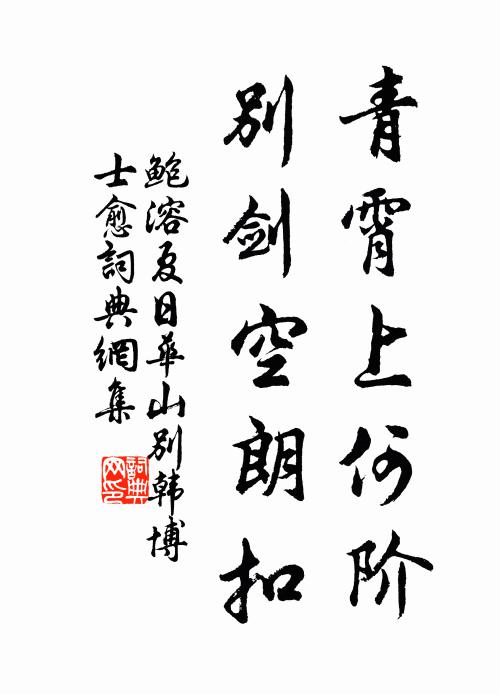 青霄上何阶
别剑空朗扣
鲍溶夏日华山别韩博
士愈詞典網集
詞典
网印